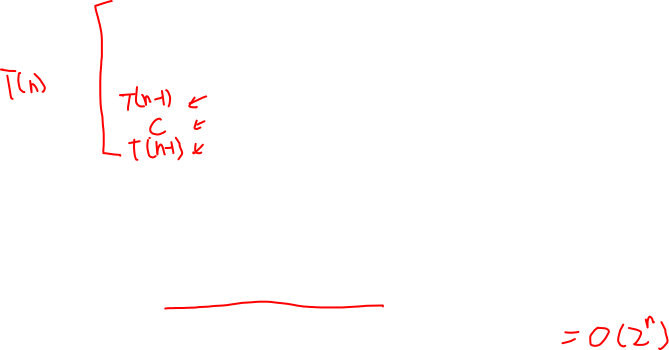 T(n)
T(n-1)
C
T(n-1)
= O(2^n)